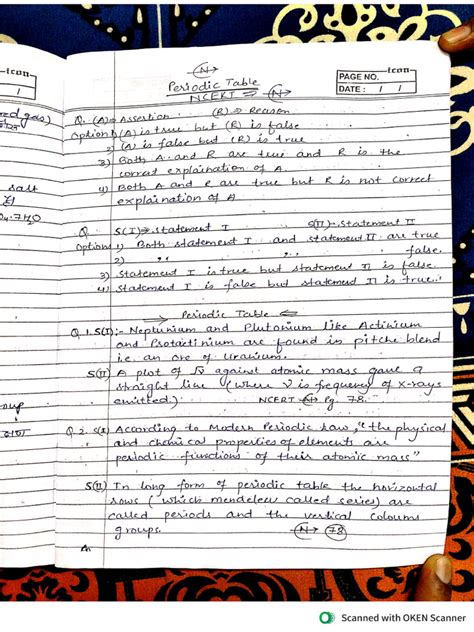 N
Periodic Table
NCERT ⇒ N
icon
PAGE NO.
DATE : / /
Q. (A)⇒ Assertion (R)⇒ Reason
Option 1) (A) is true but (R) is false
2) (A) is false but (R) is true
3) Both A and R are true and R is the
correct explaination of A
4) Both A and R are true but R is not correct
explaination of A
Q S(I)⇒ Statement I S(II)- Statement II
Options 1) Both statement I and statement II are true
2) ,, ,, false.
3) Statement I is true but statement II is false
4) Statement I is false but statement II is true.
Periodic Table
Q 1. S(I):- Neptunium and Plutonium like Actinium
and Protactinium are found in pitche blend
i.e. an ore of Uranium.
S(II) A plot of √ν against atomic mass gave a
straight line (where ν is frequency of X-rays
emitted.) NCERT N Pg 78.
Q 2. S(I) According to Modern Periodic Law, "the physical
and chemical properties of elements are
periodic functions of their atomic mass"
S(II) In long form of periodic table the horizontal
rows (which mendeleev called series) are
called periods and the vertical coloums
groups. N 78
salt
04.7H20
icon
/
Scanned with OKEN Scanner